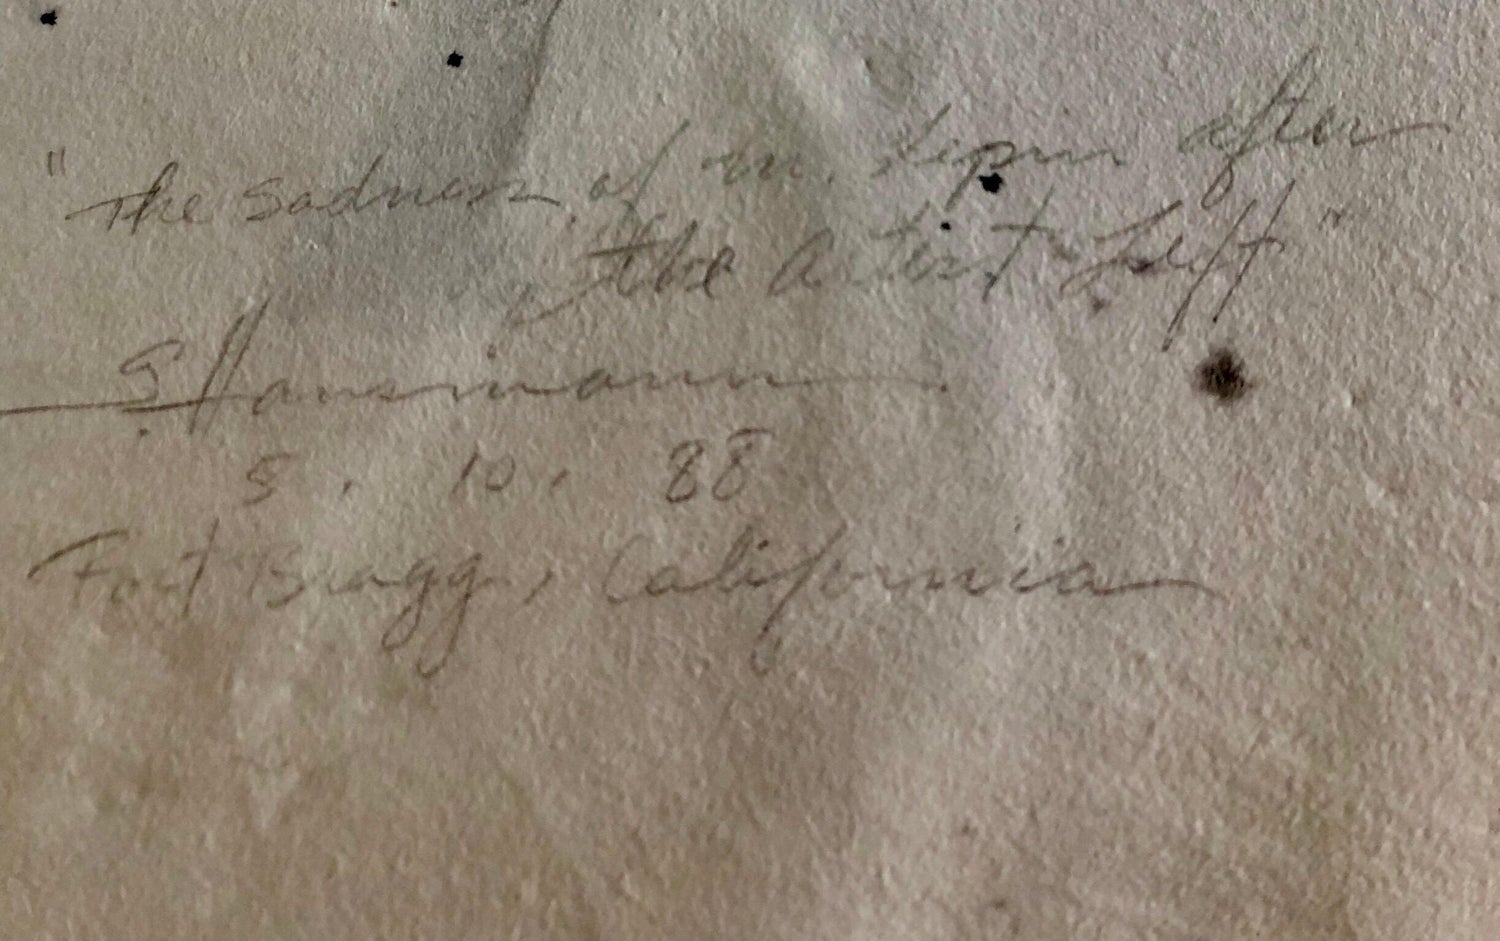 "The sadness of m. after
the artist left"
S Hansmann
5. 10. 88
Fort Bragg, California